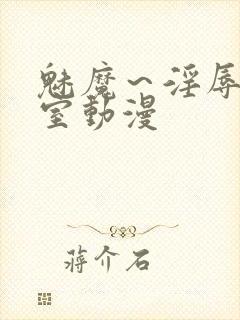 魅魔～淫辱
室動漫
蔣介石